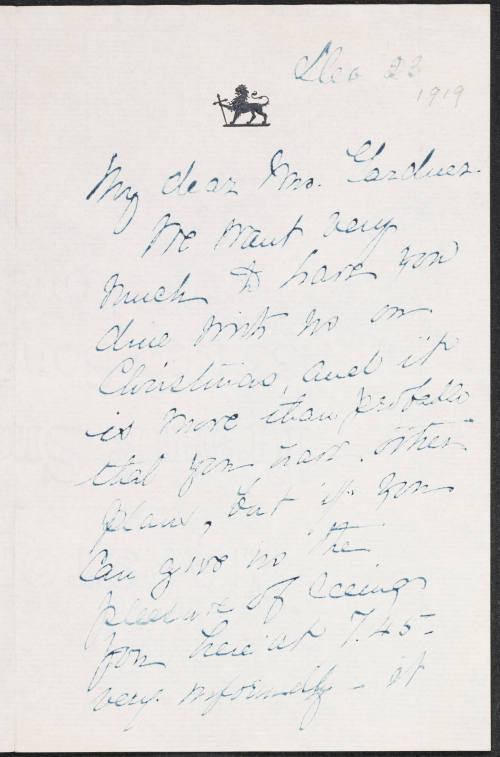 Dec 23
1919
My dear Mrs. Gardner.
We want very
much to have you
dine with us on
Christmas, and it
is more than probable
that you have other
plans, but if you
can give us the
pleasure of seeing
you here at 7.45-
very informally - it